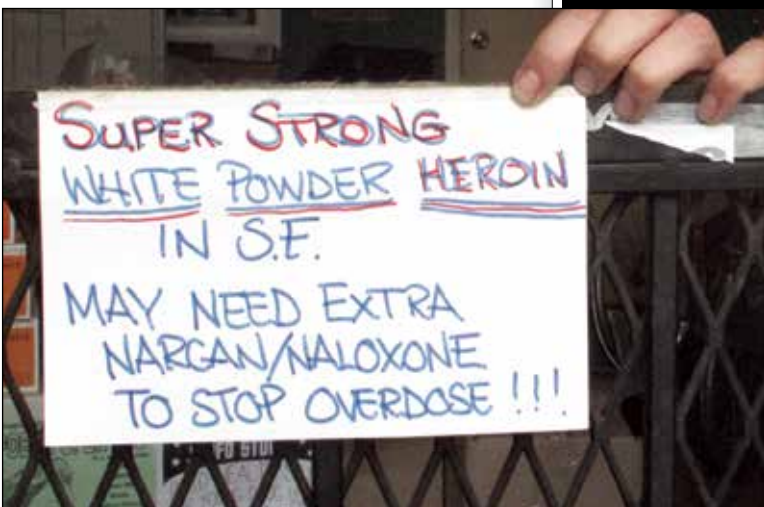 SUPER STRONG
WHITE POWDER HEROIN
IN S.E.
MAY NEED EXTRA
NARCAN/NALOXONE
TO STOP OVERDOSE !!!